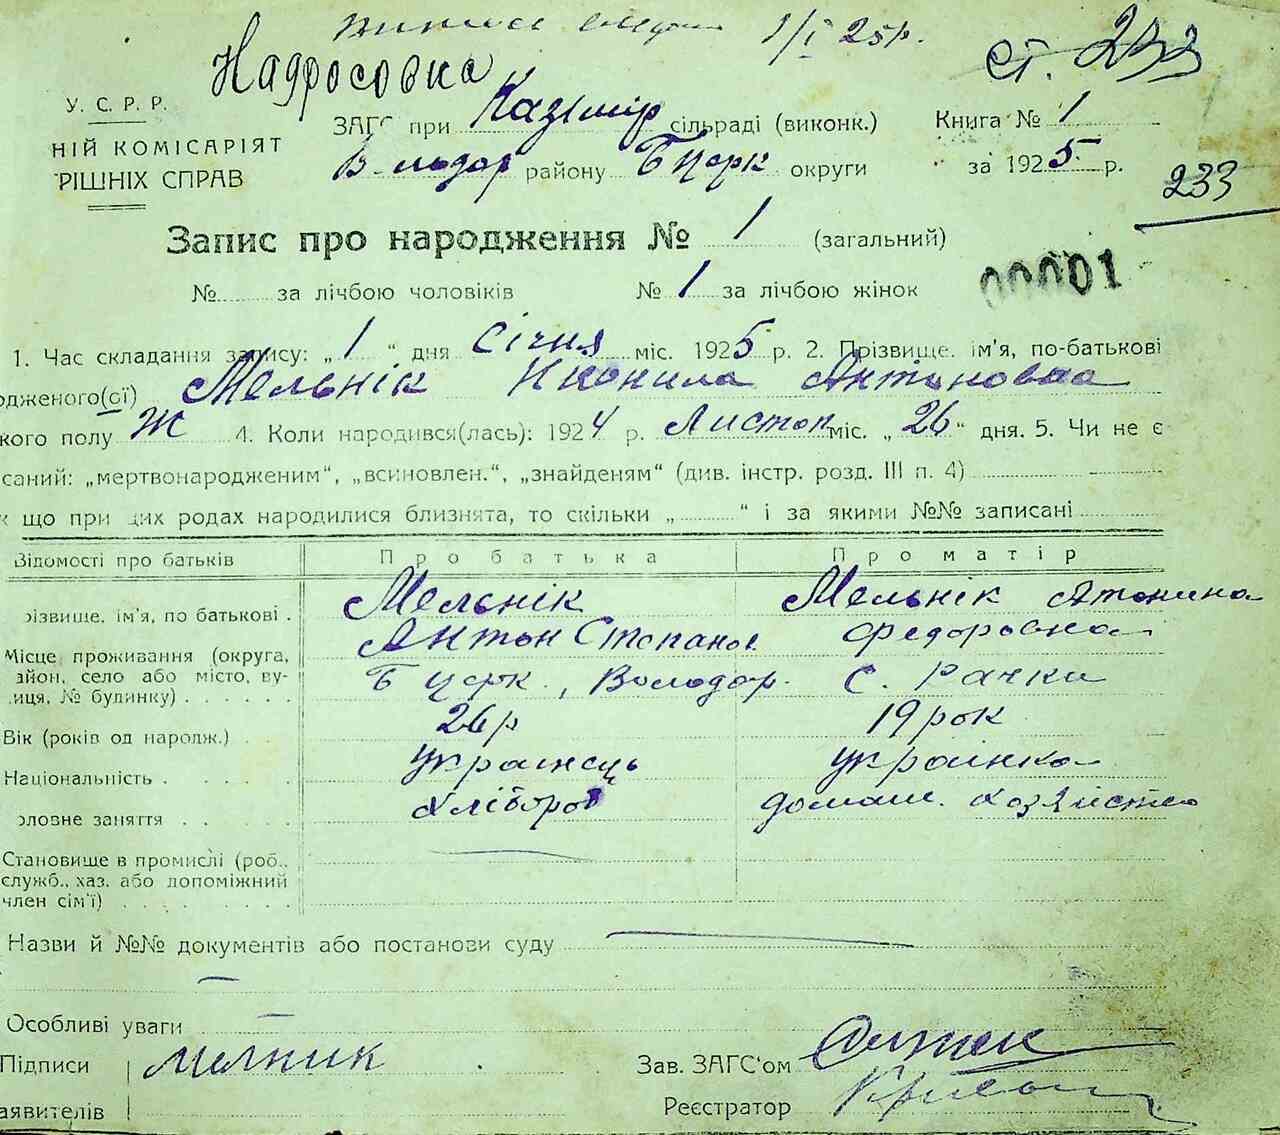 1/I 25р.
ст. 233
Надросовка
У. С. Р. Р.
ЗАГС при Казімір сільраді (виконк.) Книга № 1
НІЙ КОМІСАРІЯТ
району Б Церк округи за 1925 р.
РІШНІХ СПРАВ
233
Запис про народження № 1 (загальний)
00001
№ за лічбою чоловіків № 1 за лічбою жінок
1. Час складання запису: „1“ дня Січня міс. 1925 р. 2. Прізвище, ім'я, по-батькові
одженого(ої) Мельнік Антоновна
кого полу Ж 4. Коли народився(лась): 1924 р. Листоп міс. „26“ дня. 5. Чи не є
саний: „мертвонародженим“, „всиновлен.“, „знайденям“ (див. інстр. розд. III п. 4)
к що при цих родах народилися близнята, то скільки „ “ і за якими №№ записані
Відомості про батьків Про батька Про матір
різвище, ім'я, по батькові . Мельнік Мельнік Антонина
Антон Степанов. Федоровна
Місце проживання (округа,
айон, село або місто, ву- Б церк., Володар. с. Рачки
иця, № будинку) . . . . .
Вік (років од народж.) . 26 р 19 рок
Національність . . . . українець українка
оловне заняття . . . . Хлібороб домаш. хозяйство
Становище в промислі (роб.,
служб., хаз. або допоміжний
член сім'ї) . . . . . .
Назви й №№ документів або постанови суду
Особливі уваги
Підписи Мелник Зав. ЗАГС'ом
аявителів Реєстратор